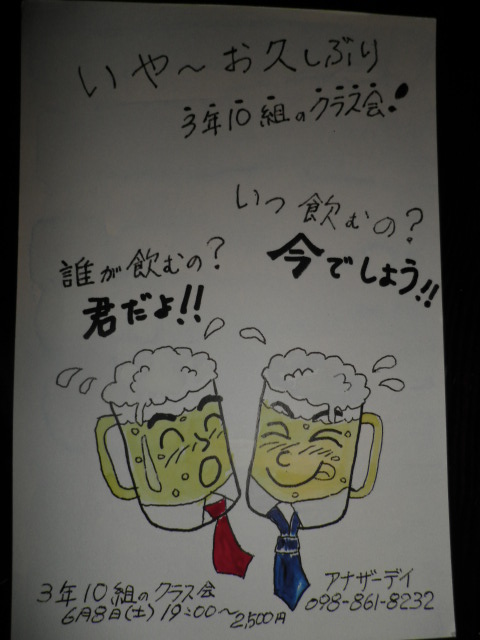 いや～お久しぶり
3年10組のクラス会!
いつ飲むの?
今でしょう!!
誰が飲むの?
君だよ!!
3年10組のクラス会
6月8日(土)19:00～2,500円
アナザーデイ
098-861-8232